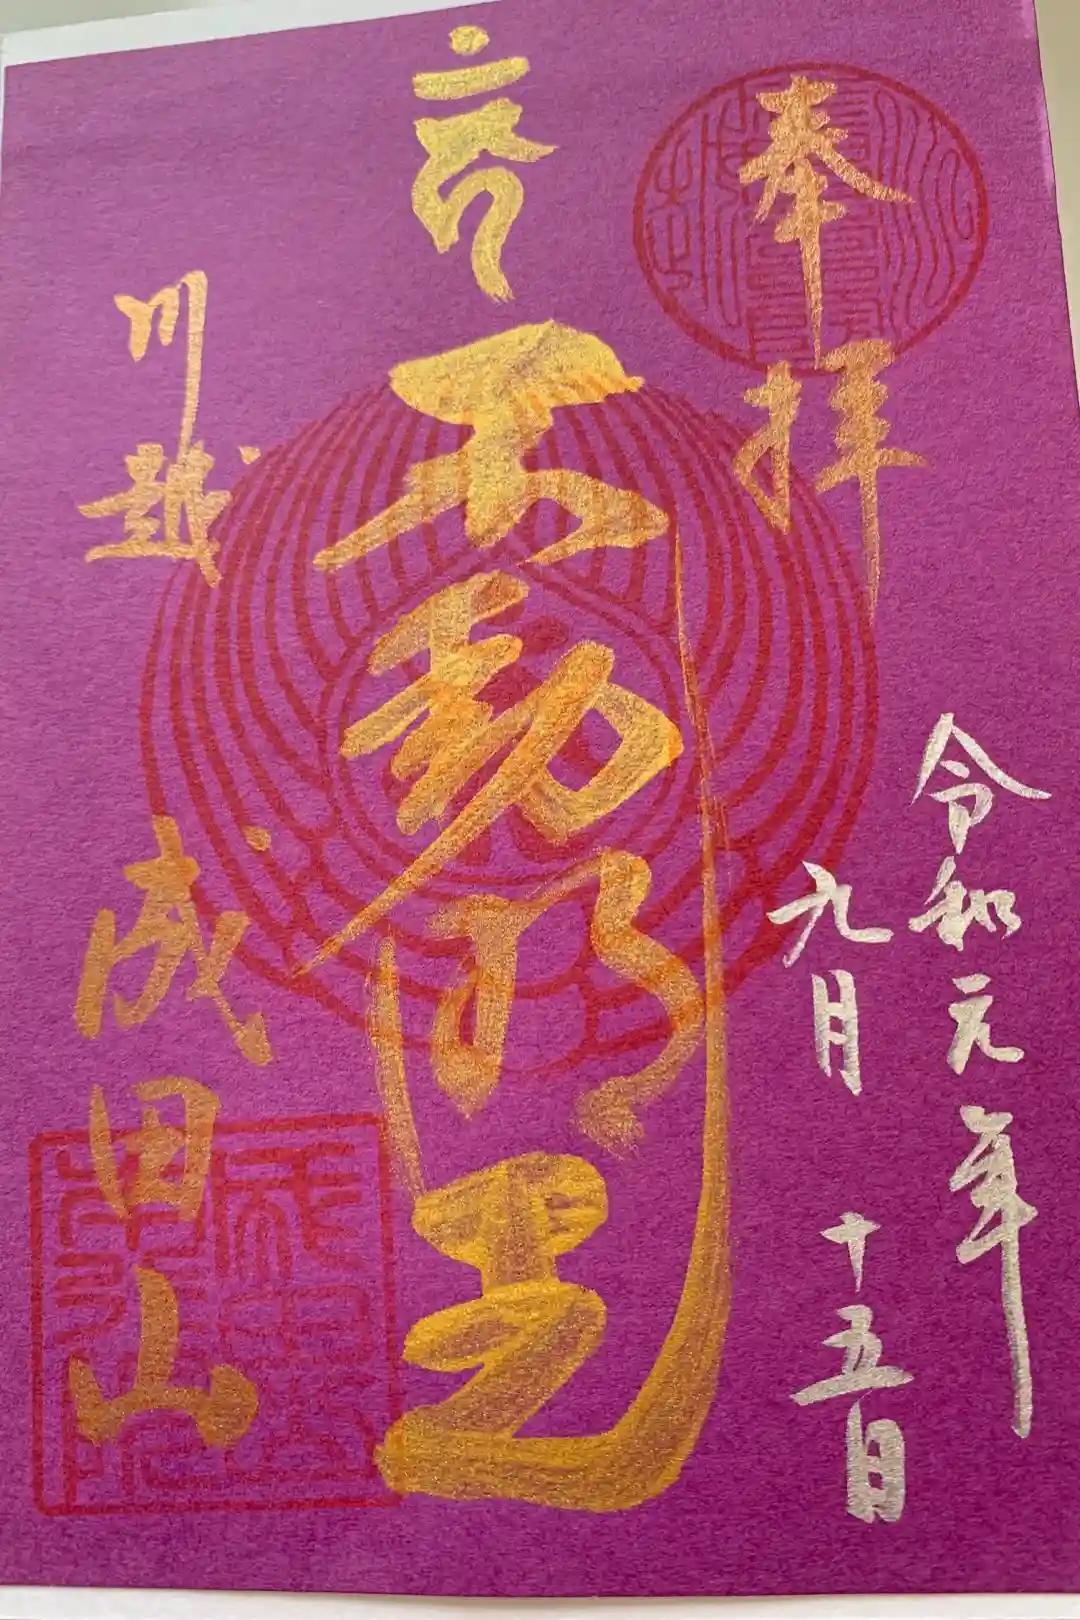 奉拝
令和元年
九月十五日
不動明王
川越
成田山